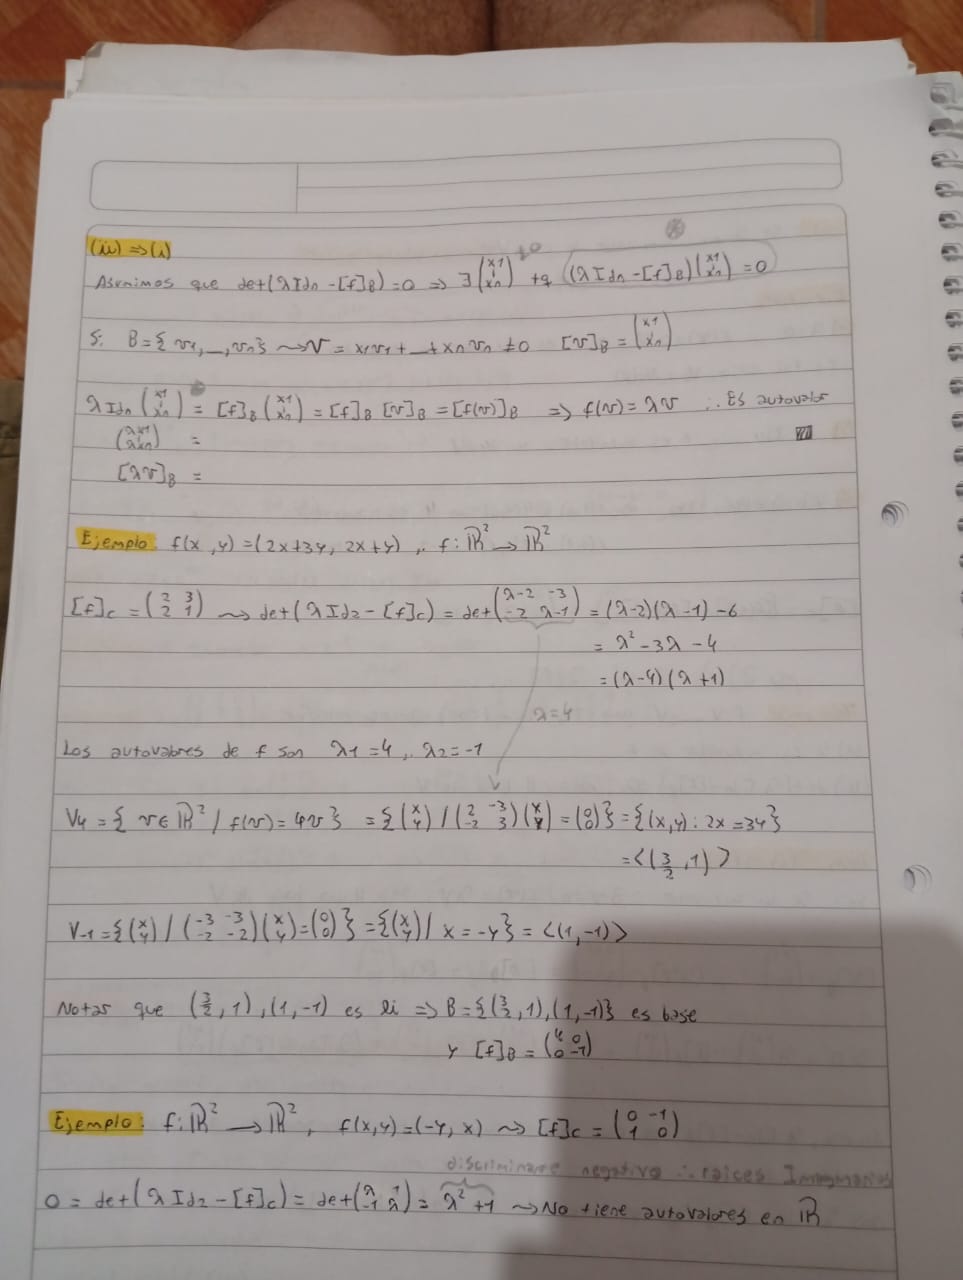 (iii) ⇒ (i)
Asumimos que det(λIdn - [f]B) = 0 ⇒ ∃ (x1 ⋮ xn) ≠0 tq (λIdn - [f]B)(x1 ⋮ xn) = 0 ⊛
Si B = {v1, _, vn} ⤳ v = x1v1 + _ + xnvn ≠ 0 [v]B = (x1 ⋮ xn)
λIdn (x1 ⋮ xn) = [f]B (x1 ⋮ xn) = [f]B [v]B = [f(v)]B ⇒ f(v) = λv ∴ Es autovalor
(λx1 ⋮ λxn) =
[λv]B =
Ejemplo: f(x,y) = (2x+3y, 2x+y), f: ℝ² → ℝ²
[f]c = (2 3 / 2 1) ⤳ det(λId2 - [f]c) = det(λ-2 -3 / -2 λ-1) = (λ-2)(λ-1) - 6
= λ² - 3λ - 4
= (λ-4)(λ+1)
λ=4
Los autovalores de f son λ1 = 4, λ2 = -1
V4 = {v ∈ ℝ² / f(v) = 4v} = {(x / y) / (2 -3 / -2 3)(x / y) = (0 / 0)} = {(x,y): 2x = 3y}
= <(3/2, 1)>
V-1 = {(x / y) / (-3 -3 / -2 -2)(x / y) = (0 / 0)} = {(x / y) / x = -y} = <(1,-1)>
Notar que (3/2, 1), (1,-1) es li ⇒ B = {(3/2, 1), (1,-1)} es base
y [f]B = (4 0 / 0 -1)
Ejemplo: f: ℝ² → ℝ², f(x,y) = (-y, x) ⤳ [f]c = (0 -1 / 1 0)
discriminante negativo ∴ raices Imaginarias
0 = det(λId2 - [f]c) = det(λ 1 / -1 λ) = λ² + 1 ⤳ No tiene autovalores en ℝ